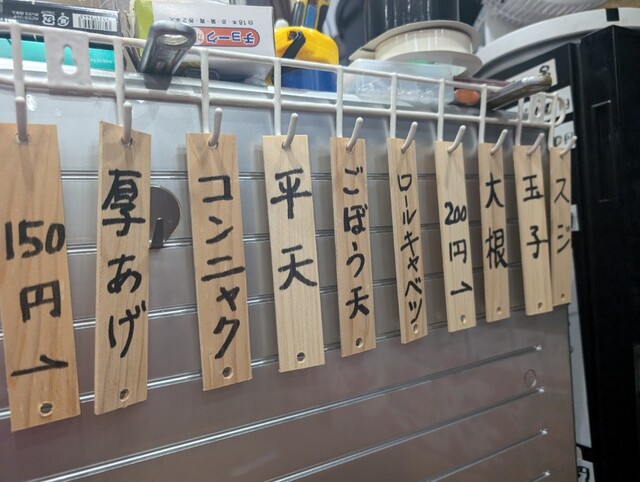 チョーク
150円→
厚あげ
コンニャク
平天
ごぼう天
ロールキャベツ
200円→
大根
玉子
スジ